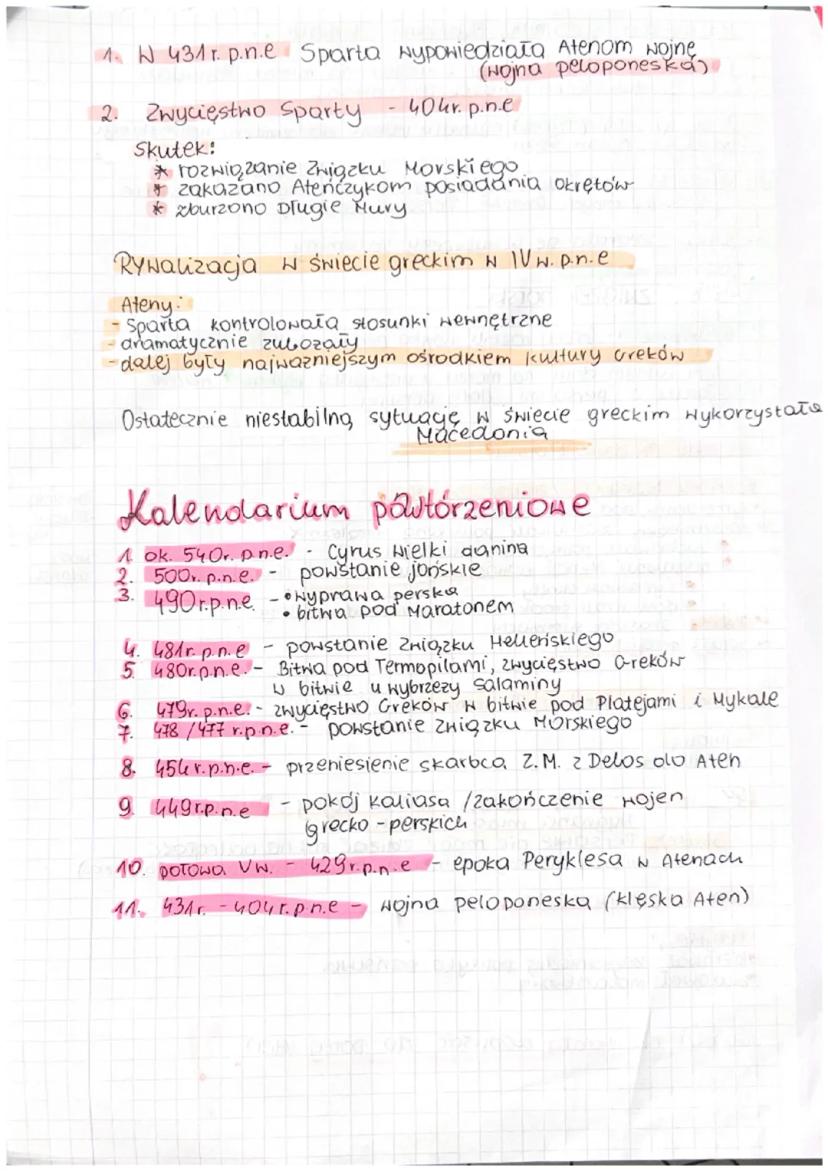 1. W 431 r. p.n.e Sparta wypowiedziała Atenom wojnę
(wojna peloponeska)
2. Zwycięstwo Sparty - 404r. p.n.e
Skutek:
* rozwiązanie Związku Morskiego
* zakazano Ateńczykom posiadania okrętów
* zburzono Długie Mury
RYwalizacja w świecie greckim w IV w. p.n.e
Ateny:
- Sparta kontrolowała stosunki wewnętrzne
- dramatycznie zubożały
- dalej były najważniejszym ośrodkiem kultury Greków
Ostatecznie niestabilną sytuację w świecie greckim wykorzystała
Macedonia
Kalendarium powtórzeniowe
1. ok. 540r. p.n.e. - Cyrus Wielki
2. 500r. p.n.e. - powstanie jońskie
3. 490r.p.n.e. - •wyprawa perska
• bitwa pod Maratonem
4. 481r. p.n.e - powstanie Związku Helleńskiego
5. 480r.p.n.e. - Bitwa pod Termopilami, zwycięstwo Greków
w bitwie u wybrzeży Salaminy
6. 479r. p.n.e. - zwycięstwo Greków w bitwie pod Platejami i Mykale
7. 478/477 r.p.n.e. - powstanie Związku Morskiego
8. 454r.p.n.e. - przeniesienie skarbca Z.M. z Delos do Aten
9. 449r.p.n.e - pokój Kaliasa /zakończenie wojen
grecko-perskich
10. połowa Vw. - 429r.p.n.e - epoka Peryklesa w Atenach
11. 431r. - 404r.p.n.e - wojna peloponeska (klęska Aten)